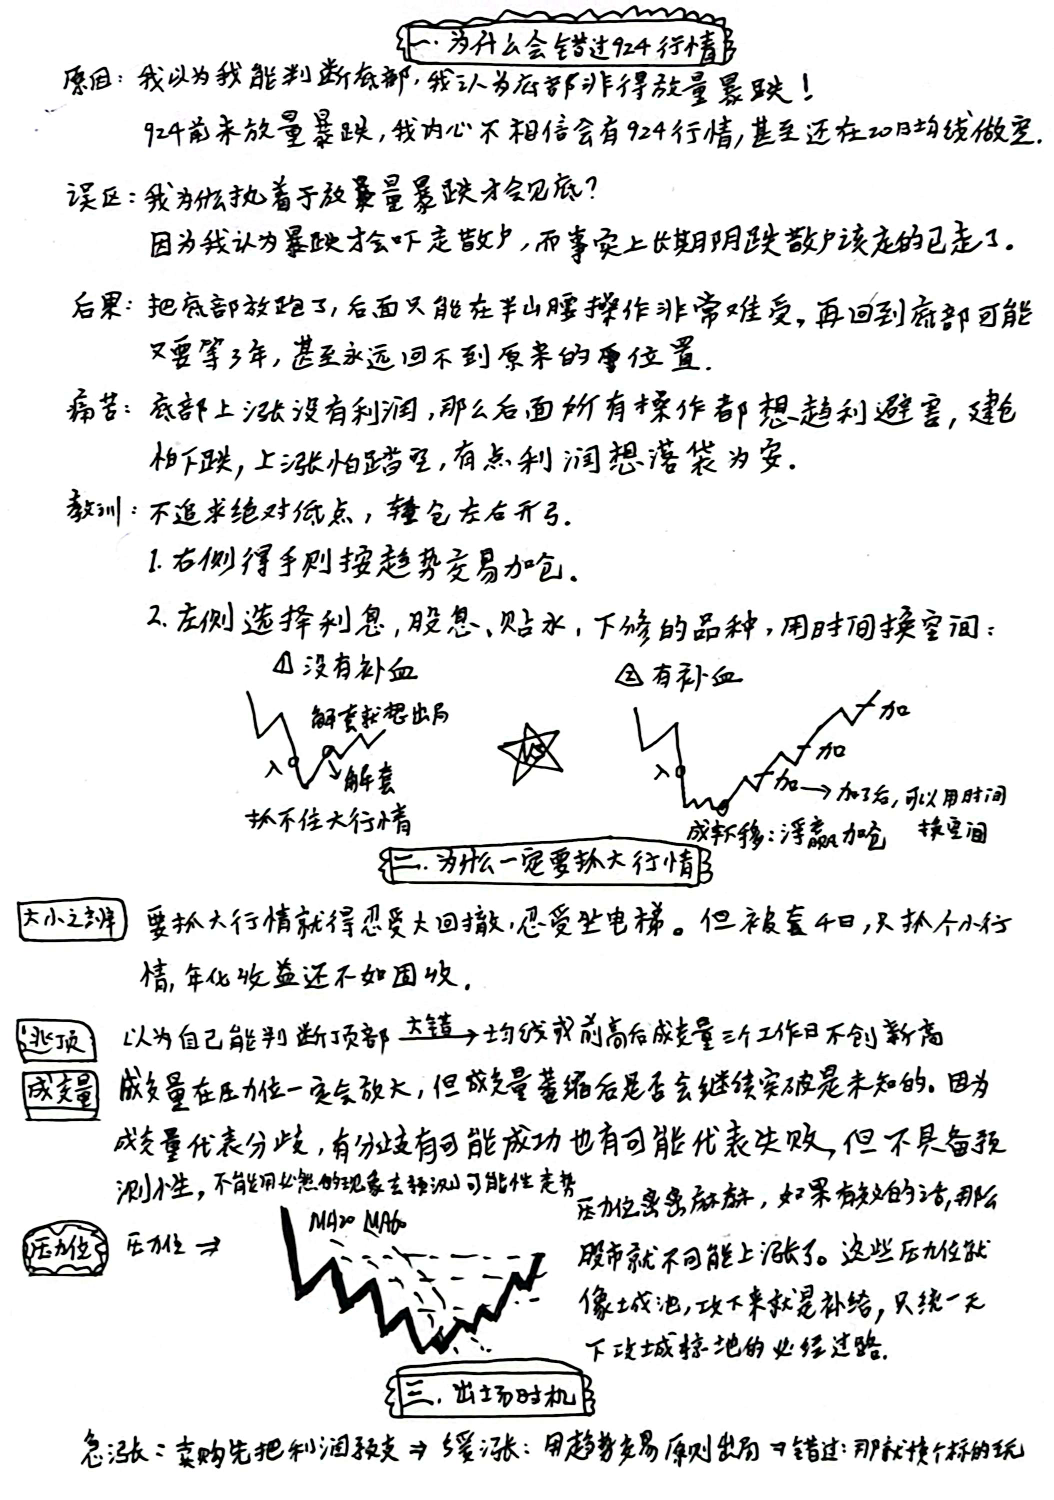 一.为什么会错过924行情
原因：我以为我能判断底部，我认为底部非得放量暴跌！
924前未放量暴跌，我内心不相信会有924行情，甚至还在20日均线做空.
误区：我为什么执着于放量暴跌才会见底？
因为我认为暴跌才会吓走散户，而事实上长期阴跌散户该走的已走了。
后果：把底部放跑了，后面只能在半山腰操作非常难受。再回到底部可能
又要等3年，甚至永远回不到原来的位置.
痛苦：底部上涨没有利润，那么后面所有操作都想趋利避害，建仓
怕下跌，上涨怕踏空，有点利润想落袋为安.
教训：不追求绝对低点，轻仓左右开弓.
1.右侧得手则按趋势交易加仓.
2.左侧选择利息、股息、贴水，下修的品种，用时间换空间：
① 没有补血
② 有补血
解套就想出局
入
解套
抓不住大行情
VS
入
加
加
加→加了后，可以用时间
换空间
成本下移：浮赢加仓
二.为什么一定要抓大行情
大小之辩 要抓大行情就得忍受大回撤，忍受坐电梯。但被套4日，只抓个小行
情，年化收益还不如固收.
逃顶 以为自己能判断顶部 大错→均线或前高后成交量三个工作日不创新高
成交量 成交量在压力位一定会放大，但成交量萎缩后是否会继续突破是未知的。因为
成交量代表分歧，有分歧有可能成功也有可能代表失败，但不具备预
测性，不能用必然的现象去预测可能性走势
压力位 压力位⇒
MA20 MA60
压力位密密麻麻，如果有效的话，那么
股市就不可能上涨了。这些压力位就
像土城池，攻下来就是补给，只统一天
下攻城掠地的必经过路.
三.出场时机
急涨：卖购先把利润预支⇒缓涨：用趋势交易原则出局⇒错过：那就换个标的玩